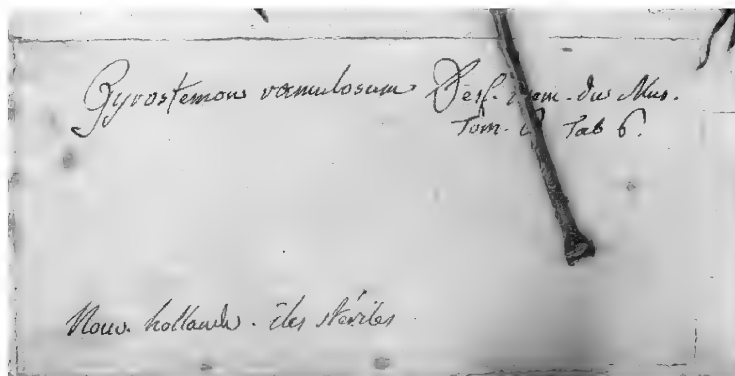 Gyrostemon ramulosum Desf. mem. du Mus.
Tom. Tab 6.
Nouv. hollande. îles stériles